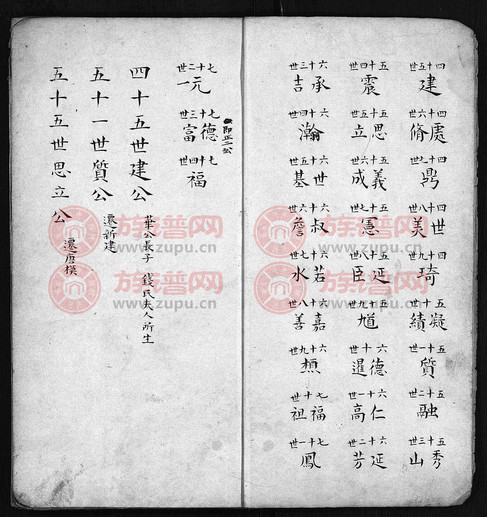 四十五世 建
四十六世 處脩
四十七世
四十八世 世美
四十九世 琦
五十世 凝績
五十一世 質
五十二世 融
五十三世 秀山
五十四世 震
五十五世 思立
五十六世 義成
五十七世 憲
五十八世 延臣
五十九世 馗
六十世 德暹
六十一世 仁高
六十二世 延芳
六十三世 承吉
六十四世 瀚
六十五世 世基
六十六世 叔詹
六十七世 若水
六十八世 嘉善
六十九世
七十世 福祖
七十一世 鳳
七十二世 元一
七十三世 德富
即正二公
七十四世 福
四十五世建公 華公長子 錢氏夫人所生
五十一世質公 遷新建
五十五世思立公 遷唐模
族谱网
www.zupu.cn
族谱网
www.zupu.cn